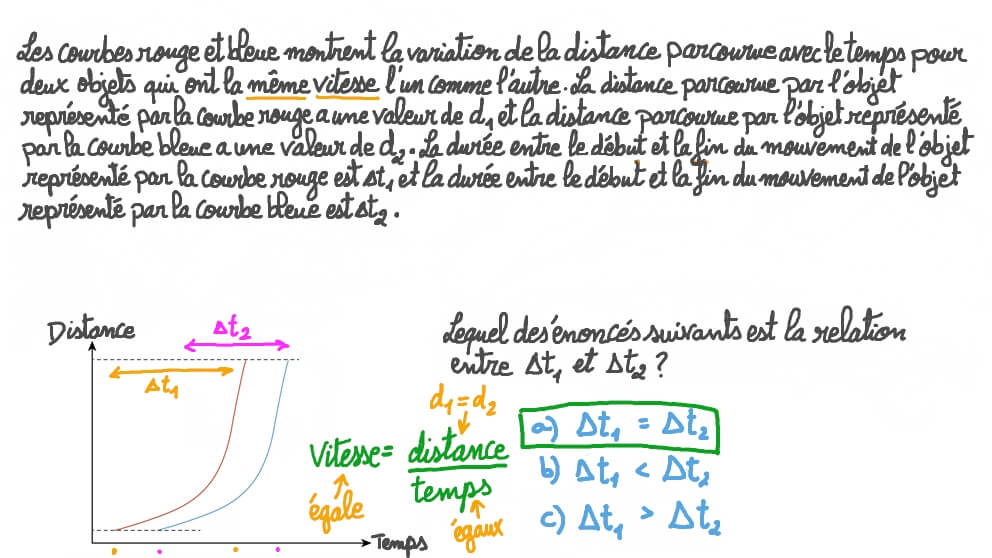 Les courbes rouge et bleue montrent la variation de la distance parcourue avec le temps pour
deux objets qui ont la même vitesse l'un comme l'autre. La distance parcourue par l'objet
représenté par la courbe rouge a une valeur de d₁ et la distance parcourue par l'objet représenté
par la courbe bleue a une valeur de d₂. La durée entre le début et la fin du mouvement de l'objet
représenté par la courbe rouge est Δt₁ et la durée entre le début et la fin du mouvement de l'objet
représenté par la courbe bleue est Δt₂.
Distance
Δt₂
Δt₁
Temps
Lequel des énoncés suivants est la relation
entre Δt₁ et Δt₂ ?
d₁ = d₂
Vitesse = distance
temps
égale
égaux
a) Δt₁ = Δt₂
b) Δt₁ < Δt₂
c) Δt₁ > Δt₂